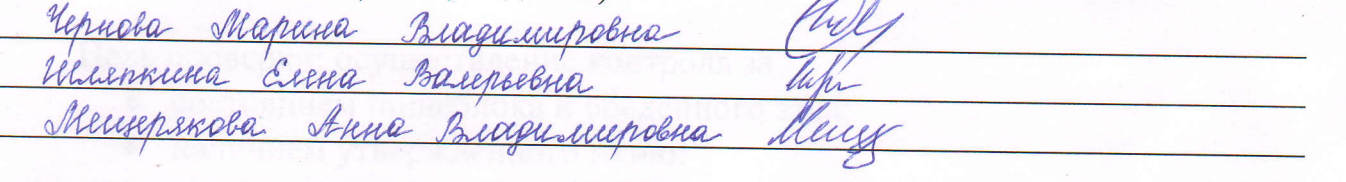 Чернова Марина Владимировна
Шляпкина Елена Валерьевна
Мещерякова Анна Владимировна Мещ